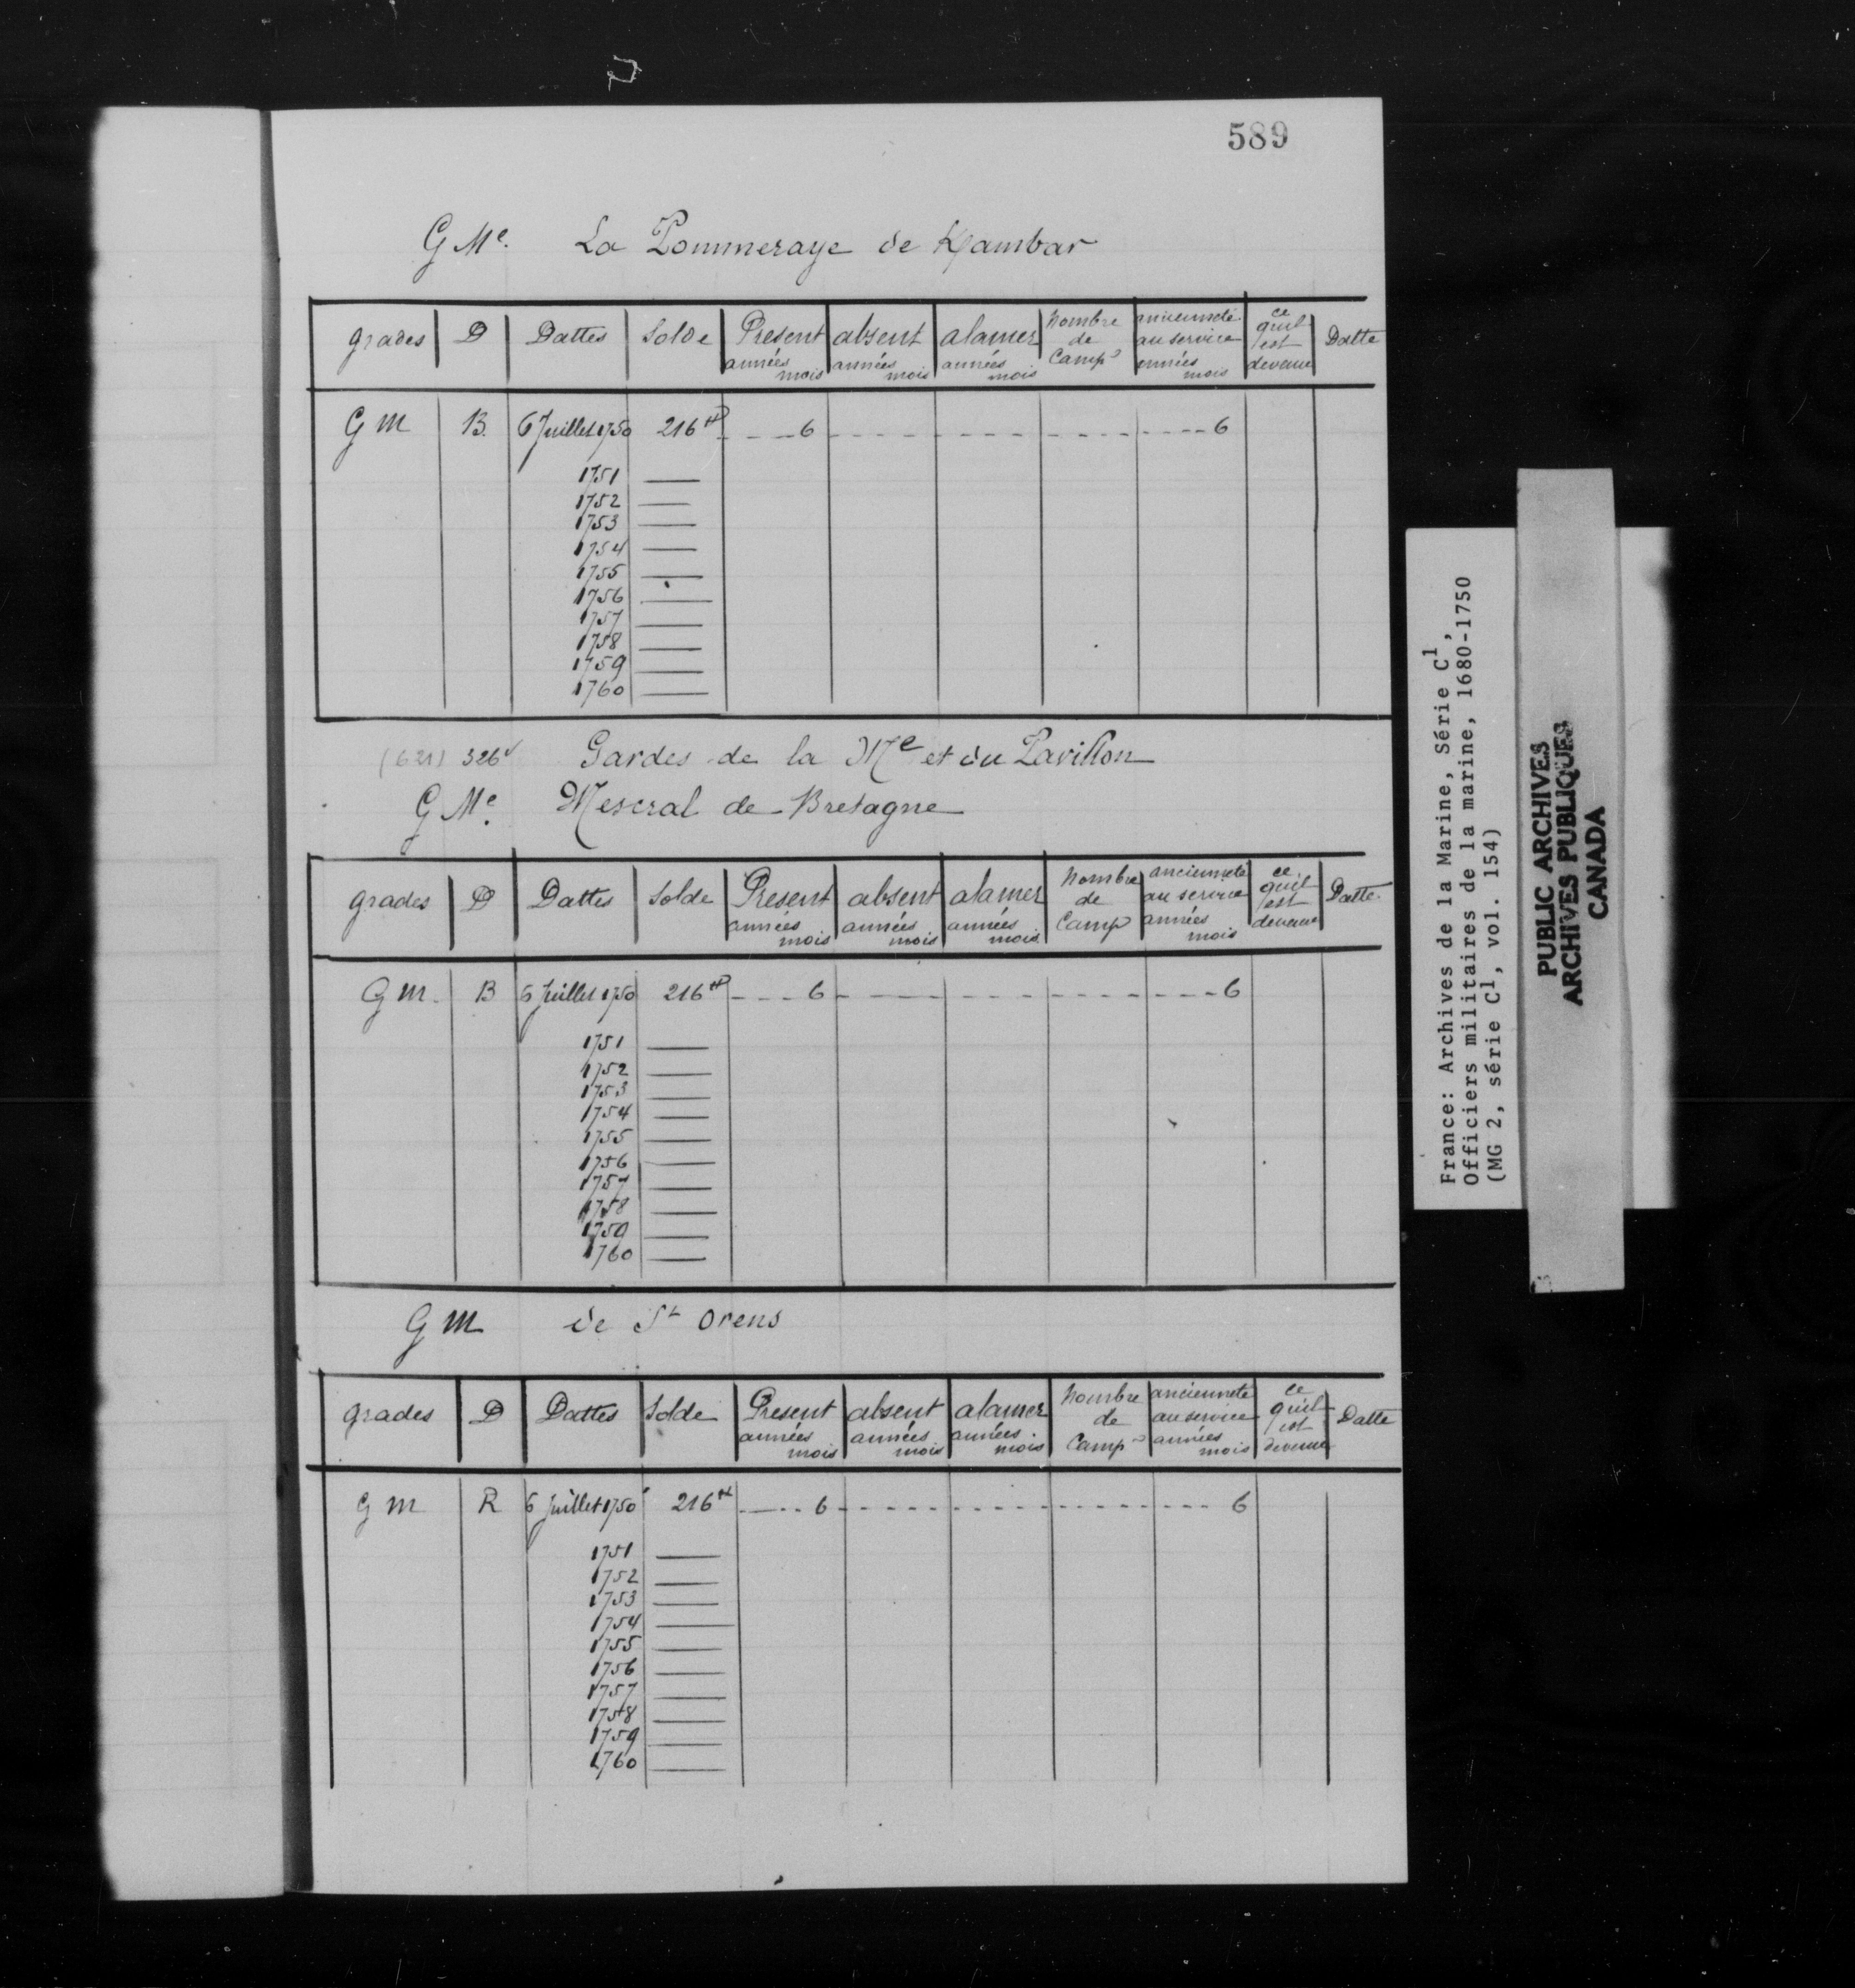 589
G Me. La Pommeraye de Kambar
grades D Dattes Solde Present années mois absent années mois alamer années mois Nombre de Camp ancienneté au service années mois ce quil est devenu Datte
G M B. 6 Juillet 1750 216 # 6 6
1751
1752
1753
1754
1755
1756
1757
1758
1759
1760
(621) 326v Gardes de la Me et du Pavillon
G Me. Mescral de Bretagne
grades D Dattes Solde Present années mois absent années mois alamer années mois Nombre de Camp ancienneté au service années mois ce quil est devenu Datte
G M. B 6 Juillet 1750 216 # 6 6
1751
1752
1753
1754
1755
1756
1757
1758
1759
1760
G M de St Orens
grades D Dattes Solde Present années mois absent années mois alamer années mois Nombre de Camp ancienneté au service années mois ce quil est devenu Datte
G M R 6 Juillet 1750 216 # 6 6
1751
1752
1753
1754
1755
1756
1757
1758
1759
1760
France: Archives de la Marine, Série C1,
Officiers militaires de la marine, 1680-1750
(MG 2, série C1, vol. 154)
PUBLIC ARCHIVES
ARCHIVES PUBLIQUES
CANADA